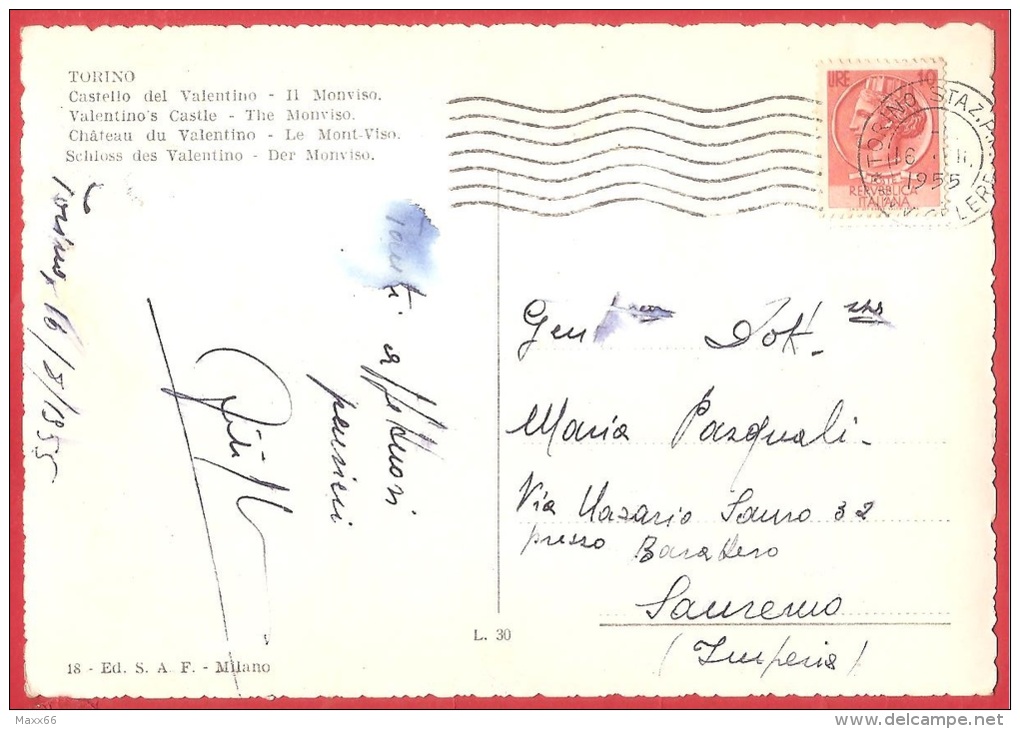 TORINO
Castello del Valentino - Il Monviso.
Valentino's Castle - The Monviso.
Château du Valentino - Le Mont-Viso.
Schloss des Valentino - Der Monviso.
LIRE 10
POSTE
REPVBBLICA
ITALIANA
TORINO STAZ. P.N.
16
1955
Torino, 16/8/1955
Tanti
affettuosi
pensieri
Gen Dott.
Maria Pasquali
Via Nazario Sauro 32
presso Baratero
Sanremo
(Imperia)
L. 30
18 - Ed. S. A. F. - Milano
Maxx66
www.delcampe.net